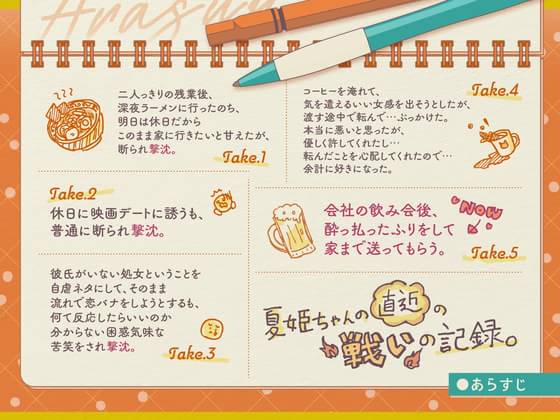 二人っきりの残業後、
深夜ラーメンに行ったのち、
明日は休日だから
このまま家に行きたいと甘えたが、
断られ撃沈。
Take.1
Take.2
休日に映画デートに誘うも、
普通に断られ撃沈。
彼氏がいない処女ということを
自虐ネタにして、そのまま
流れで恋バナをしようとするも、
何て反応したらいいのか
分からない困惑気味な
苦笑をされ撃沈。
Take.3
コーヒーを淹れて、
気を遣えるいい女感を出そうとしたが、
渡す途中で転んで…ぶっかけた。
本当に悪いと思ったが、
優しく許してくれたし…
転んだことを心配してくれたので…
余計に好きになった。
Take.4
会社の飲み会後、
酔っ払ったふりをして
家まで送ってもらう。
NOW
Take.5
夏姫ちゃんの直近の
戦いの記録。
●あらすじ